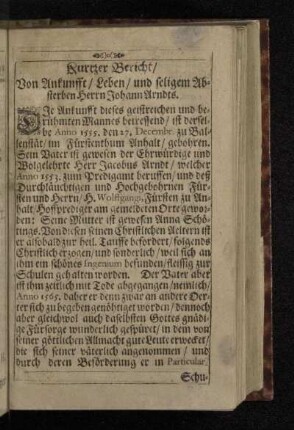 Kurtzer Bericht/
Von Ankunfft/ Leben/ und seligem Ab-
sterben Herrn Johann Arndts.
DIe Ankunfft dieses geistreichen und be-
rühmten Mannes betreffend/ ist dersel-
be Anno 1555. den 27. Decembr. zu Bal-
lenstät/ im Fürstenthum Anhalt/ gebohren.
Sein Vater ist gewesen der Ehrwürdige und
Wolgelehrte Herr Jacobus Arndt/ welcher
Anno 1553. zum Predigamt beruffen/ und deß
Durchläuchtigen und Hochgebohrnen Für-
sten und Herrn/ H. Wolffgangs, Fürsten zu An-
halt/ Hoffprediger am gemeldeten Orte gewor-
den: Seine Mutter ist gewesen Anna Schö-
nings. Von diesen seinen Christlichen Aeltern ist
er alsobald zur heil. Tauffe befordert/ folgends
Christlich erzogen/ und sonderlich/ weil sich an
ihm ein schönes Ingenium befunden/ fleissig zur
Schulen gehalten worden. Der Vater aber
ist ihm zeitlich mit Tode abgegangen/ nemlich/
Anno 1565. daher er denn zwar an andere Oer-
ter sich zu begeben genöhtiget worden/ dennoch
aber gleichwol auch daselbsten Gottes gnädi-
ge Fürsorge wunderlich gespüret/ in dem von
seiner göttlichen Allmacht gute Leute erwecket/
die sich seiner väterlich angenommen/ und
durch deren Beförderung er in Particular,
Schu-